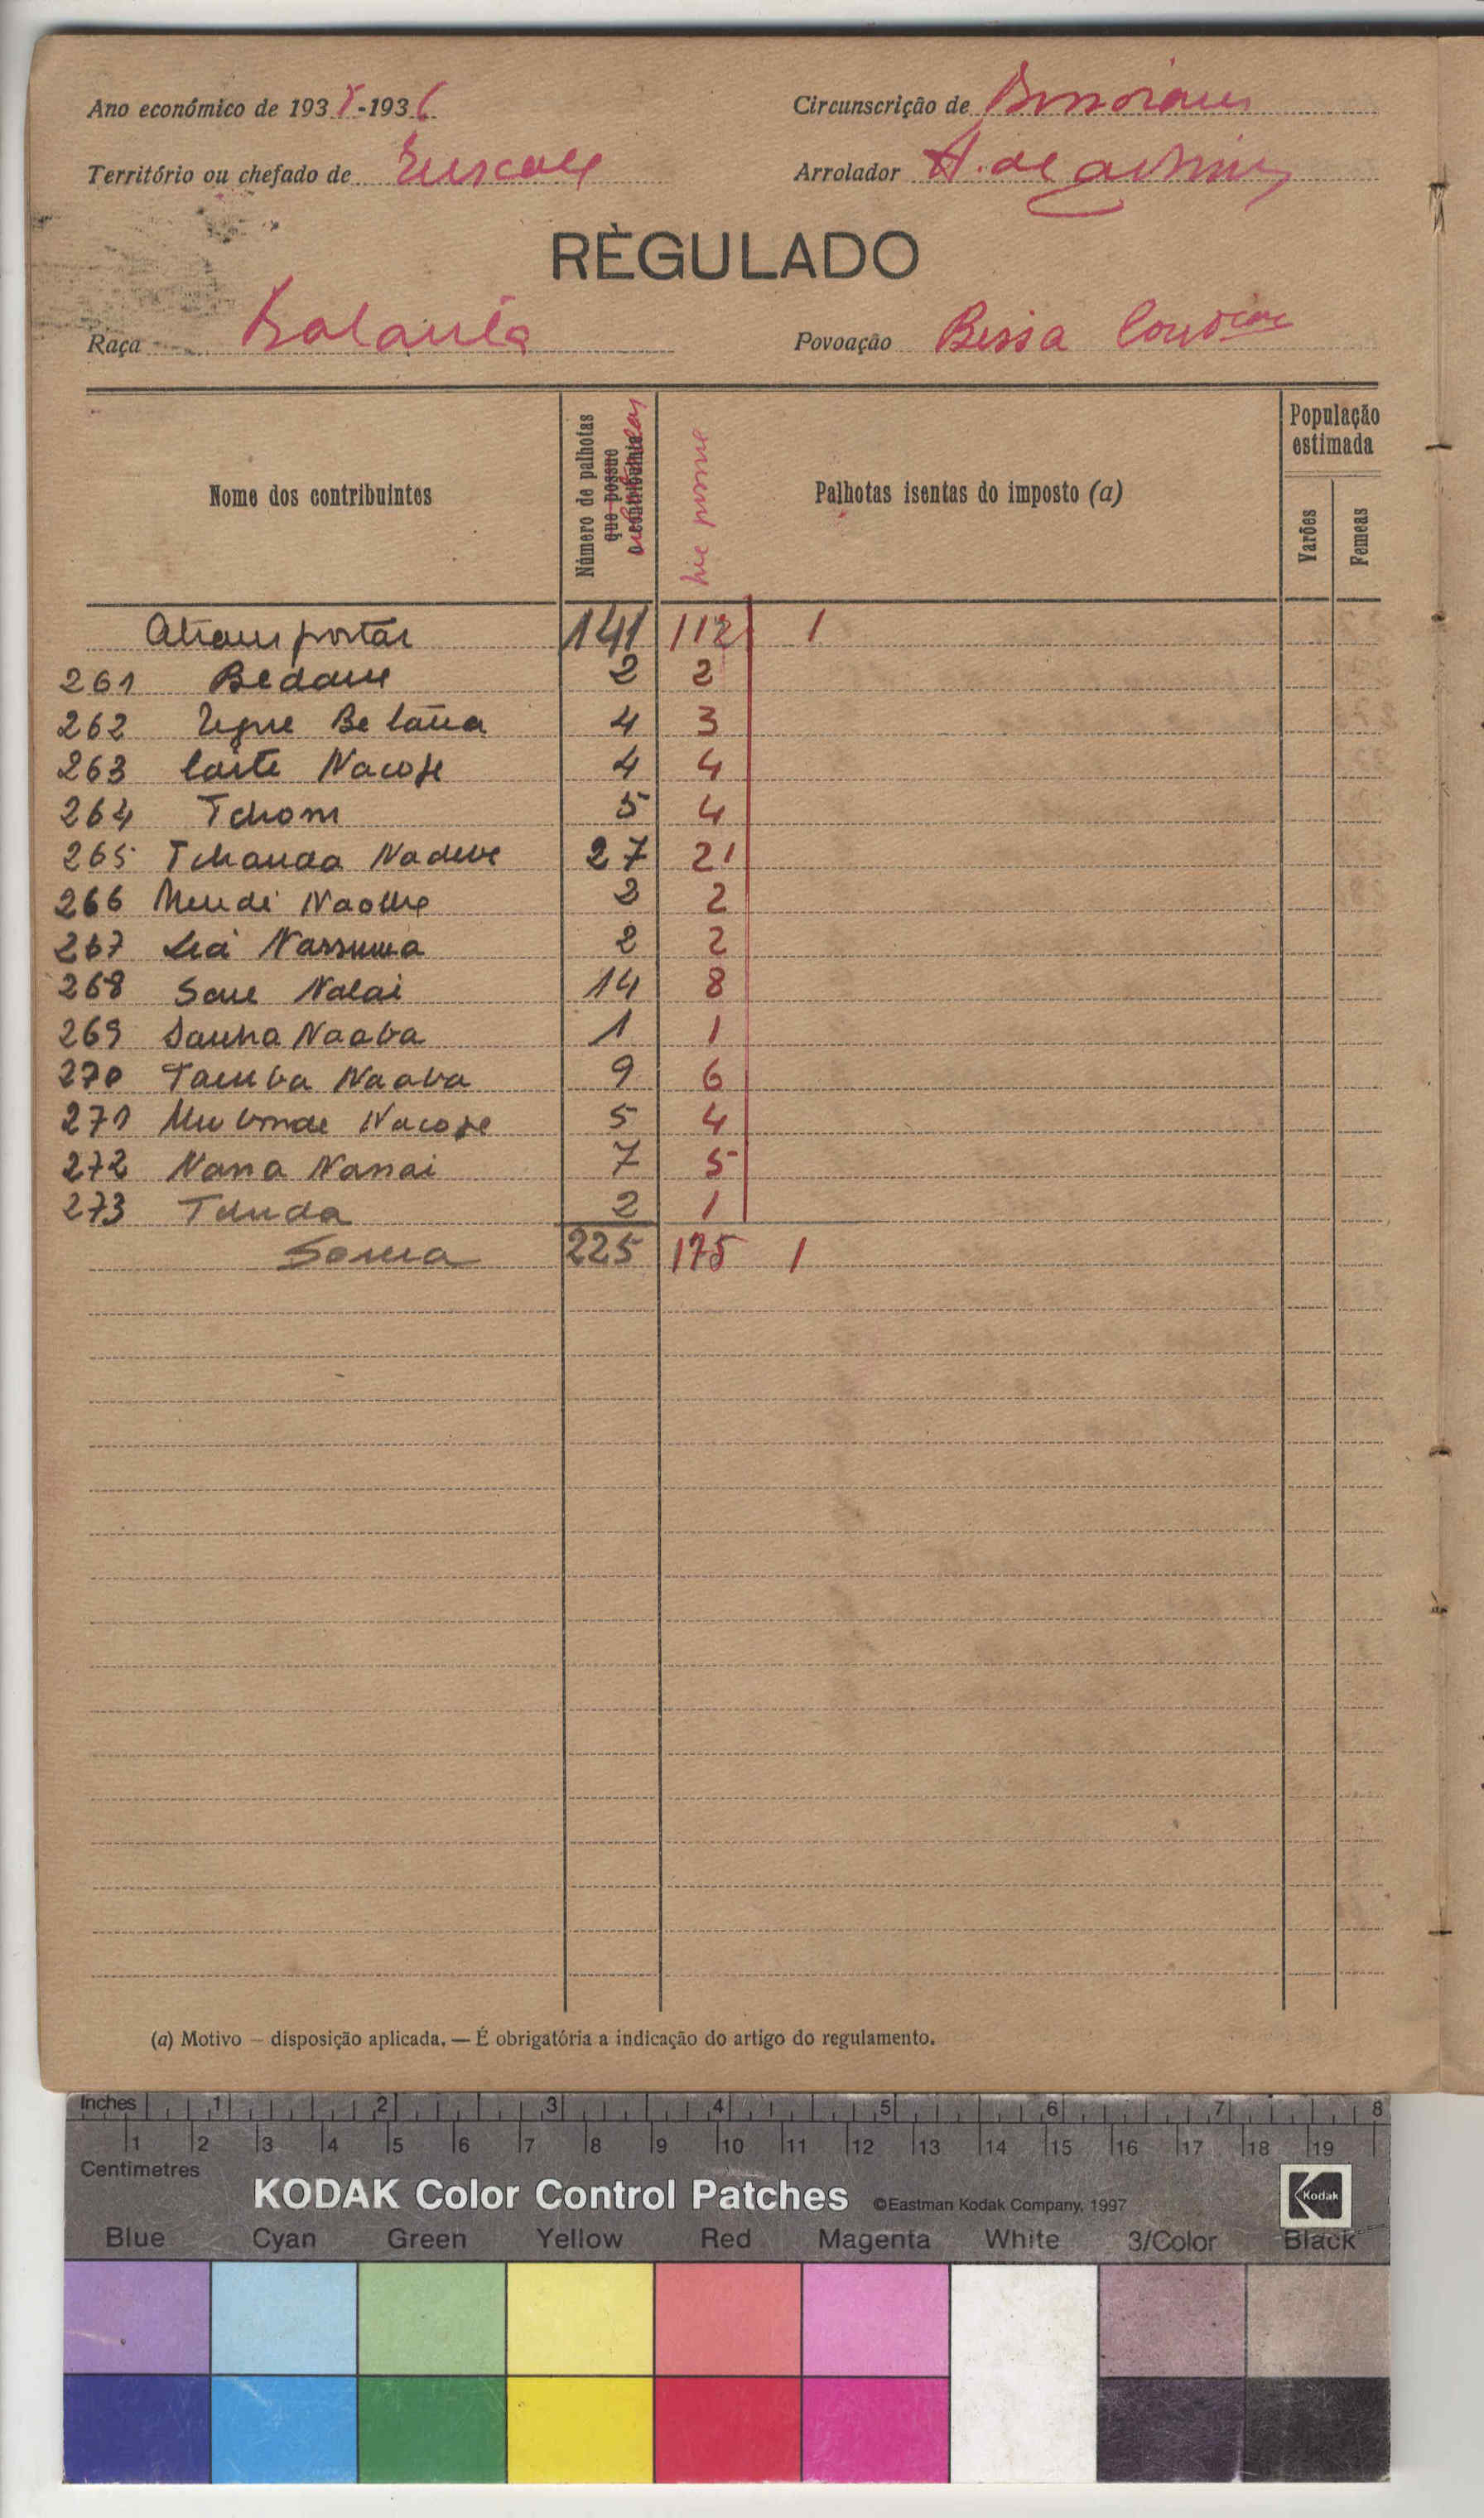 Ano económico de 1935-1936 Circunscrição de
Território ou chefado de Arrolador A. de
RÈGULADO
Raça Balanta Povoação Bissa
Nome dos contribuintes Número de palhotas que possue o contribuinte que possue Palhotas isentas do imposto (a) População estimada Varões Femeas
Atransportar 141 112 1
261 Bedam 2 2
262 Be 4 3
263 Nacose 4 4
264 Tchom 5 4
265 Tchanda Nadeve 27 21
266 2 2
267 Nassuma 2 2
268 Sane Nalai 14 8
269 Sanha Naaba 1 1
270 Tamba Naaba 9 6
271 Nacose 5 4
272 Nana Nanai 7 5
273 Tchuda 2 1
Soma 225 175 1
(a) Motivo — disposição aplicada. — É obrigatória a indicação do artigo do regulamento.
Inches 1 2 3 4 5 6 7 8
1 2 3 4 5 6 7 8 9 10 11 12 13 14 15 16 17 18 19
Centimetres
KODAK Color Control Patches ©Eastman Kodak Company, 1997 Kodak
Blue Cyan Green Yellow Red Magenta White 3/Color Black